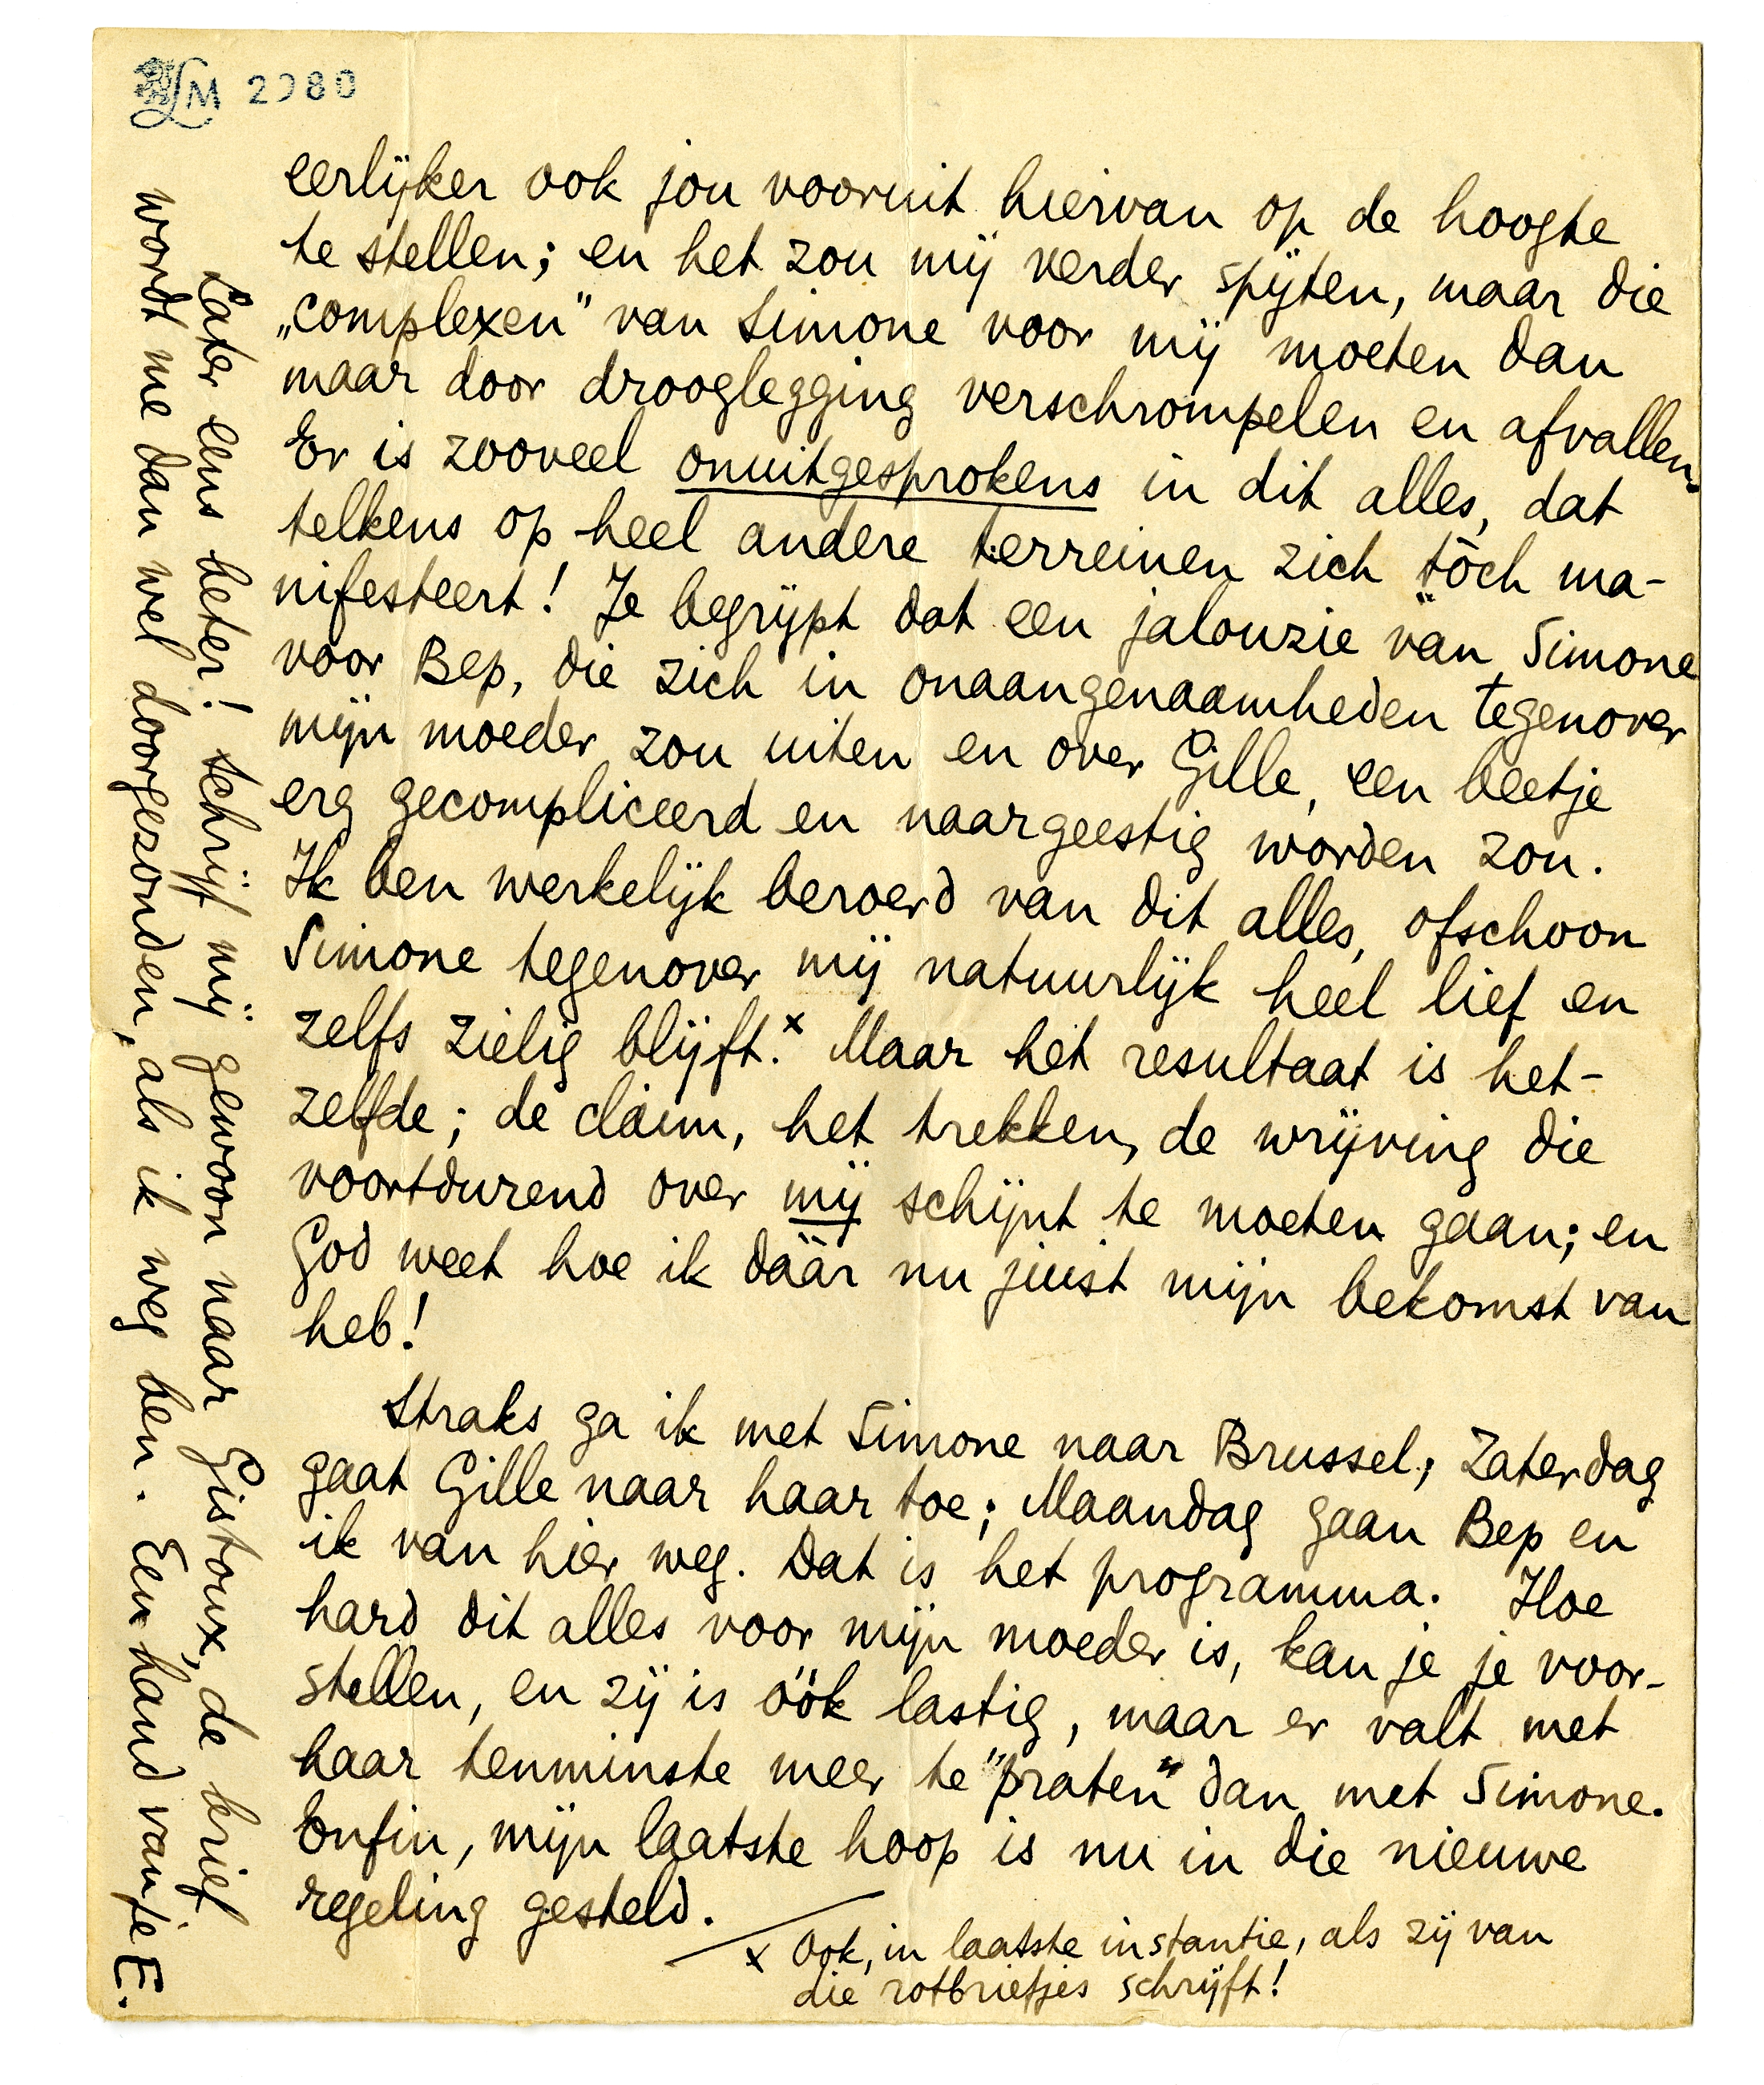 LM 2980
eerlijker ook jou vooruit hiervan op de hoogte
te stellen; en het zou mij verder spijten, maar die
„complexen" van Simone voor mij moeten dan
maar door drooglegging verschrompelen en afvallen.
Er is zooveel onuitgesprokens in dit alles, dat
telkens op heel andere terreinen zich tòch ma-
nifesteert! Je begrijpt dat een jalouzie van Simone
voor Bep, die zich in onaangenaamheden tegenover
mijn moeder zou uiten en over Gille, een beetje
erg gecompliceerd en naargeestig worden zou.
Ik ben werkelijk beroerd van dit alles, ofschoon
Simone tegenover mij natuurlijk heel lief en
zelfs zielig blijft.x Maar het resultaat is het-
zelfde; de claim, het trekken, de wrijving die
voortdurend over mij schijnt te moeten gaan; en
God weet hoe ik dààr nu juist mijn bekomst van
heb!
Straks ga ik met Simone naar Brussel; Zaterdag
gaat Gille naar haar toe; Maandag gaan Bep en
ik van hier weg. Dat is het programma. Hoe
hard dit alles voor mijn moeder is, kan je je voor-
stellen, en zij is óók lastig, maar er valt met
haar tenminste meer te "praten" dan met Simone.
Enfin, mijn laatste hoop is nu in die nieuwe
regeling gesteld.
x Ook, in laatste instantie, als zij van
die rotbriefjes schrijft!
Later eens beter! Schrijf mij gewoon naar Gistoux, de brief
wordt me dan wel doorgezonden, als ik weg ben. Een hand van je E.